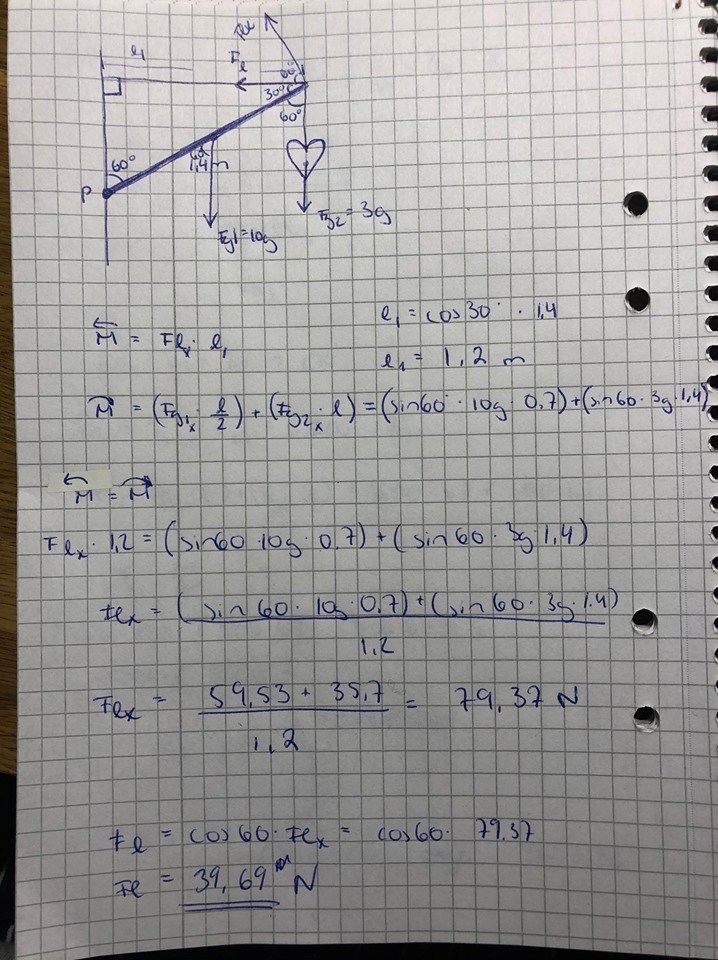 l₁
Fₗₓ
Fₗ
60°
30°
60°
60°
P
1,4 m
Fg1 = 10g
Fg₂ = 3g
l₁ = cos30° · 1,4
M = Fₗₓ · l₁
l₁ = 1,2 m
M = (Fg₁ₓ · l/2) + (Fg₂ₓ · l) = (sin60° · 10g · 0,7) + (sin60 · 3g · 1,4)
M = M
Fₗₓ · 1,2 = (sin60 · 10g · 0,7) + (sin60 · 3g · 1,4)
Fₗₓ = (sin60 · 10g · 0,7) + (sin60 · 3g · 1.4)
1,2
Fₗₓ = 59,53 + 35,7 = 79,37 N
1,2
Fₗ = cos60 · Fₗₓ = cos60 · 79.37
Fₗ = 39,69 N